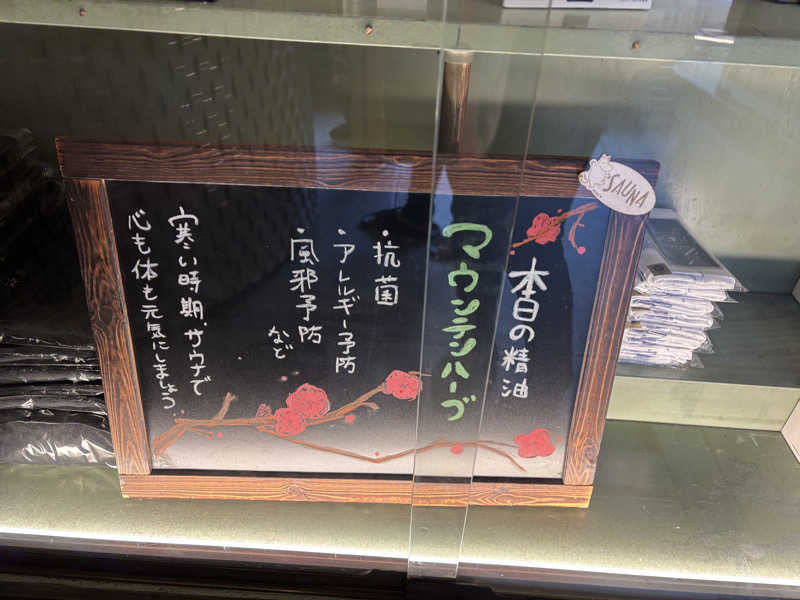 SAUNA
本日の精油
マウンテンハーブ
・抗菌
・アレルギー予防
・風邪予防
など
寒い時期、サウナで
心も体も元気にしましょう。